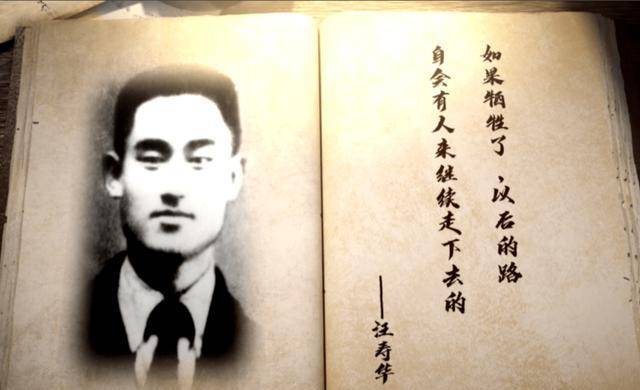 如果牺牲了，以后的路
自会有人来继续走下去的
——汪寿华